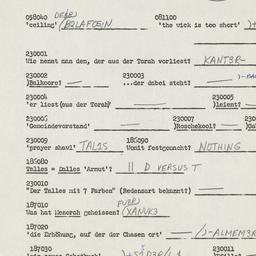 058040 081100
'ceiling' (BALAFO5;N 'the wick is too short' )+
230001
Wie nennt man den, der aus der Torah vorliest? KANT3R-
230002 230003
)Balkoore! ...der dabei steht?
230004 230005
'er liest (aus der Torah)' )leient!
230006 230007
'Gemeindevorstand' )Roschekool?
230009 186090
'prayer shawl' TAL1S Womit festgemacht? NOTHING
186080
Talles = Dalles 'Armut'? || D VERSUS T
230010
"Der Talles mit 7 Farben" (Redensart bekannt?)
187010
Was hat Menorah geheissen? (XANUK3
187020
'die Erhöhung, auf der der Chasen ort' )-ALMEM3R
187030 230011